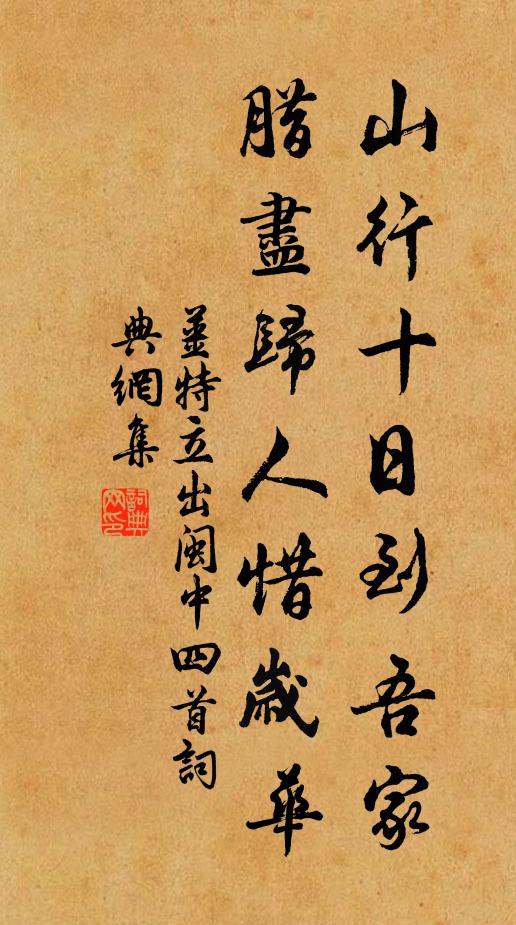 山行十日到吾家
腊盡歸人惜歲華
姜特立出閩中四首詞
典網集
詞典網印